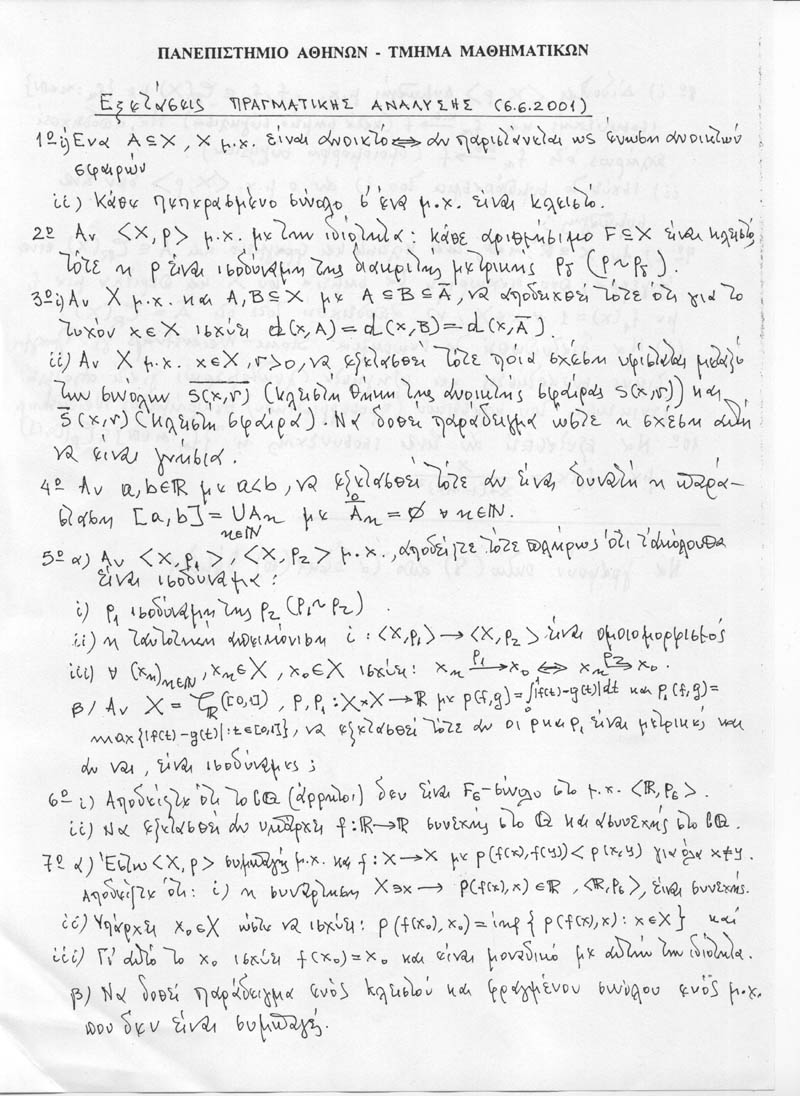 ΠΑΝΕΠΙΣΤΗΜΙΟ ΑΘΗΝΩΝ - ΤΜΗΜΑ ΜΑΘΗΜΑΤΙΚΩΝ
Εξετάσεις ΠΡΑΓΜΑΤΙΚΗΣ ΑΝΑΛΥΣΗΣ (6.6.2001)
1º i) Ενα A⊆X, X μ.χ. είναι ανοικτό ⇔ αν παριστάνεται ως ένωση ανοικτών
σφαιρών
ii) Κάθε πεπερασμένο σύνολο σ' ένα μ.χ. είναι κλειστό.
2º Αν <X, ρ> μ.χ. με την ιδιότητα: κάθε αριθμήσιμο F⊆X είναι κλειστό,
τότε η ρ είναι ισοδύναμη της διακριτής μετρικής ρδ (ρ~ρδ).
3º i) Αν X μ.χ. και A,B⊆X με A⊆B⊆Ā, να αποδειχθεί τότε ότι για το
τυχόν x∈X ισχύει d(x,A)=d(x,B)=d(x,Ā).
ii) Αν X μ.χ. x∈X, r>0, να εξετασθεί τότε ποία σχέση υφίσταται μεταξύ
των συνόλων \overline{S(x,r)} (κλειστή θήκη της ανοικτής σφαίρας S(x,r)) και
\overline{S}(x,r) (κλειστή σφαίρα). Να δοθεί παράδειγμα ώστε η σχέση αυτή
να είναι γνήσια.
4º Αν a,b∈ℝ με a<b, να εξετασθεί τότε αν είναι δυνατή η παρά-
σταση [a,b]=∪_{n∈ℕ}A_n με \overset{o}{\overline{A}}_n=∅ ∀n∈ℕ.
5º α) Αν <X,ρ₁>, <X,ρ₂> μ.χ., αποδείξτε τότε πλήρως ότι τ' ακόλουθα
είναι ισοδύναμα:
i) ρ₁ ισοδύναμη της ρ₂ (ρ₁~ρ₂).
ii) η ταυτοτική απεικόνιση i: <X,ρ₁>→<X,ρ₂> είναι ομοιομορφισμός
iii) ∀ (x_n)_{n∈ℕ}, x_n∈X, x₀∈X ισχύει: x_n \xrightarrow{ρ₁} x₀ ⇔ x_n \xrightarrow{ρ₂} x₀.
β/ Αν X=C_ℝ([0,1]), ρ,ρ₁: X×X→ℝ με ρ(f,g)=∫₀¹|f(t)-g(t)|dt και ρ₁(f,g)=
max{|f(t)-g(t)|: t∈[0,1]}, να εξετασθεί τότε αν οι ρ και ρ₁ είναι μετρικές και
αν ναι, είναι ισοδύναμες;
6º i) Αποδείξτε ότι το Cℚ (άρρητοι) δεν είναι Fσ-σύνολο στο μ.χ. <ℝ,ρσ>.
ii) Να εξετασθεί αν υπάρχει f:ℝ→ℝ συνεχής στο ℚ και ασυνεχής στο Cℚ.
7º α) Έστω <X,ρ> συμπαγής μ.χ. και f:X→X με ρ(f(x),f(y))<ρ(x,y) για όλα x≠y.
Αποδείξτε ότι: i) η συνάρτηση X∋x→ ρ(f(x),x)∈ℝ, <ℝ,ρσ>, είναι συνεχής.
ii) Υπάρχει x₀∈X ώστε να ισχύει: ρ(f(x₀),x₀)=inf{ρ(f(x),x): x∈X} και
iii) Γι' αυτό το x₀ ισχύει f(x₀)=x₀ και είναι μοναδικό με αυτήν την ιδιότητα.
β) Να δοθεί παράδειγμα ενός κλειστού και φραγμένου συνόλου ενός μ.χ.
που δεν είναι συμπαγές.